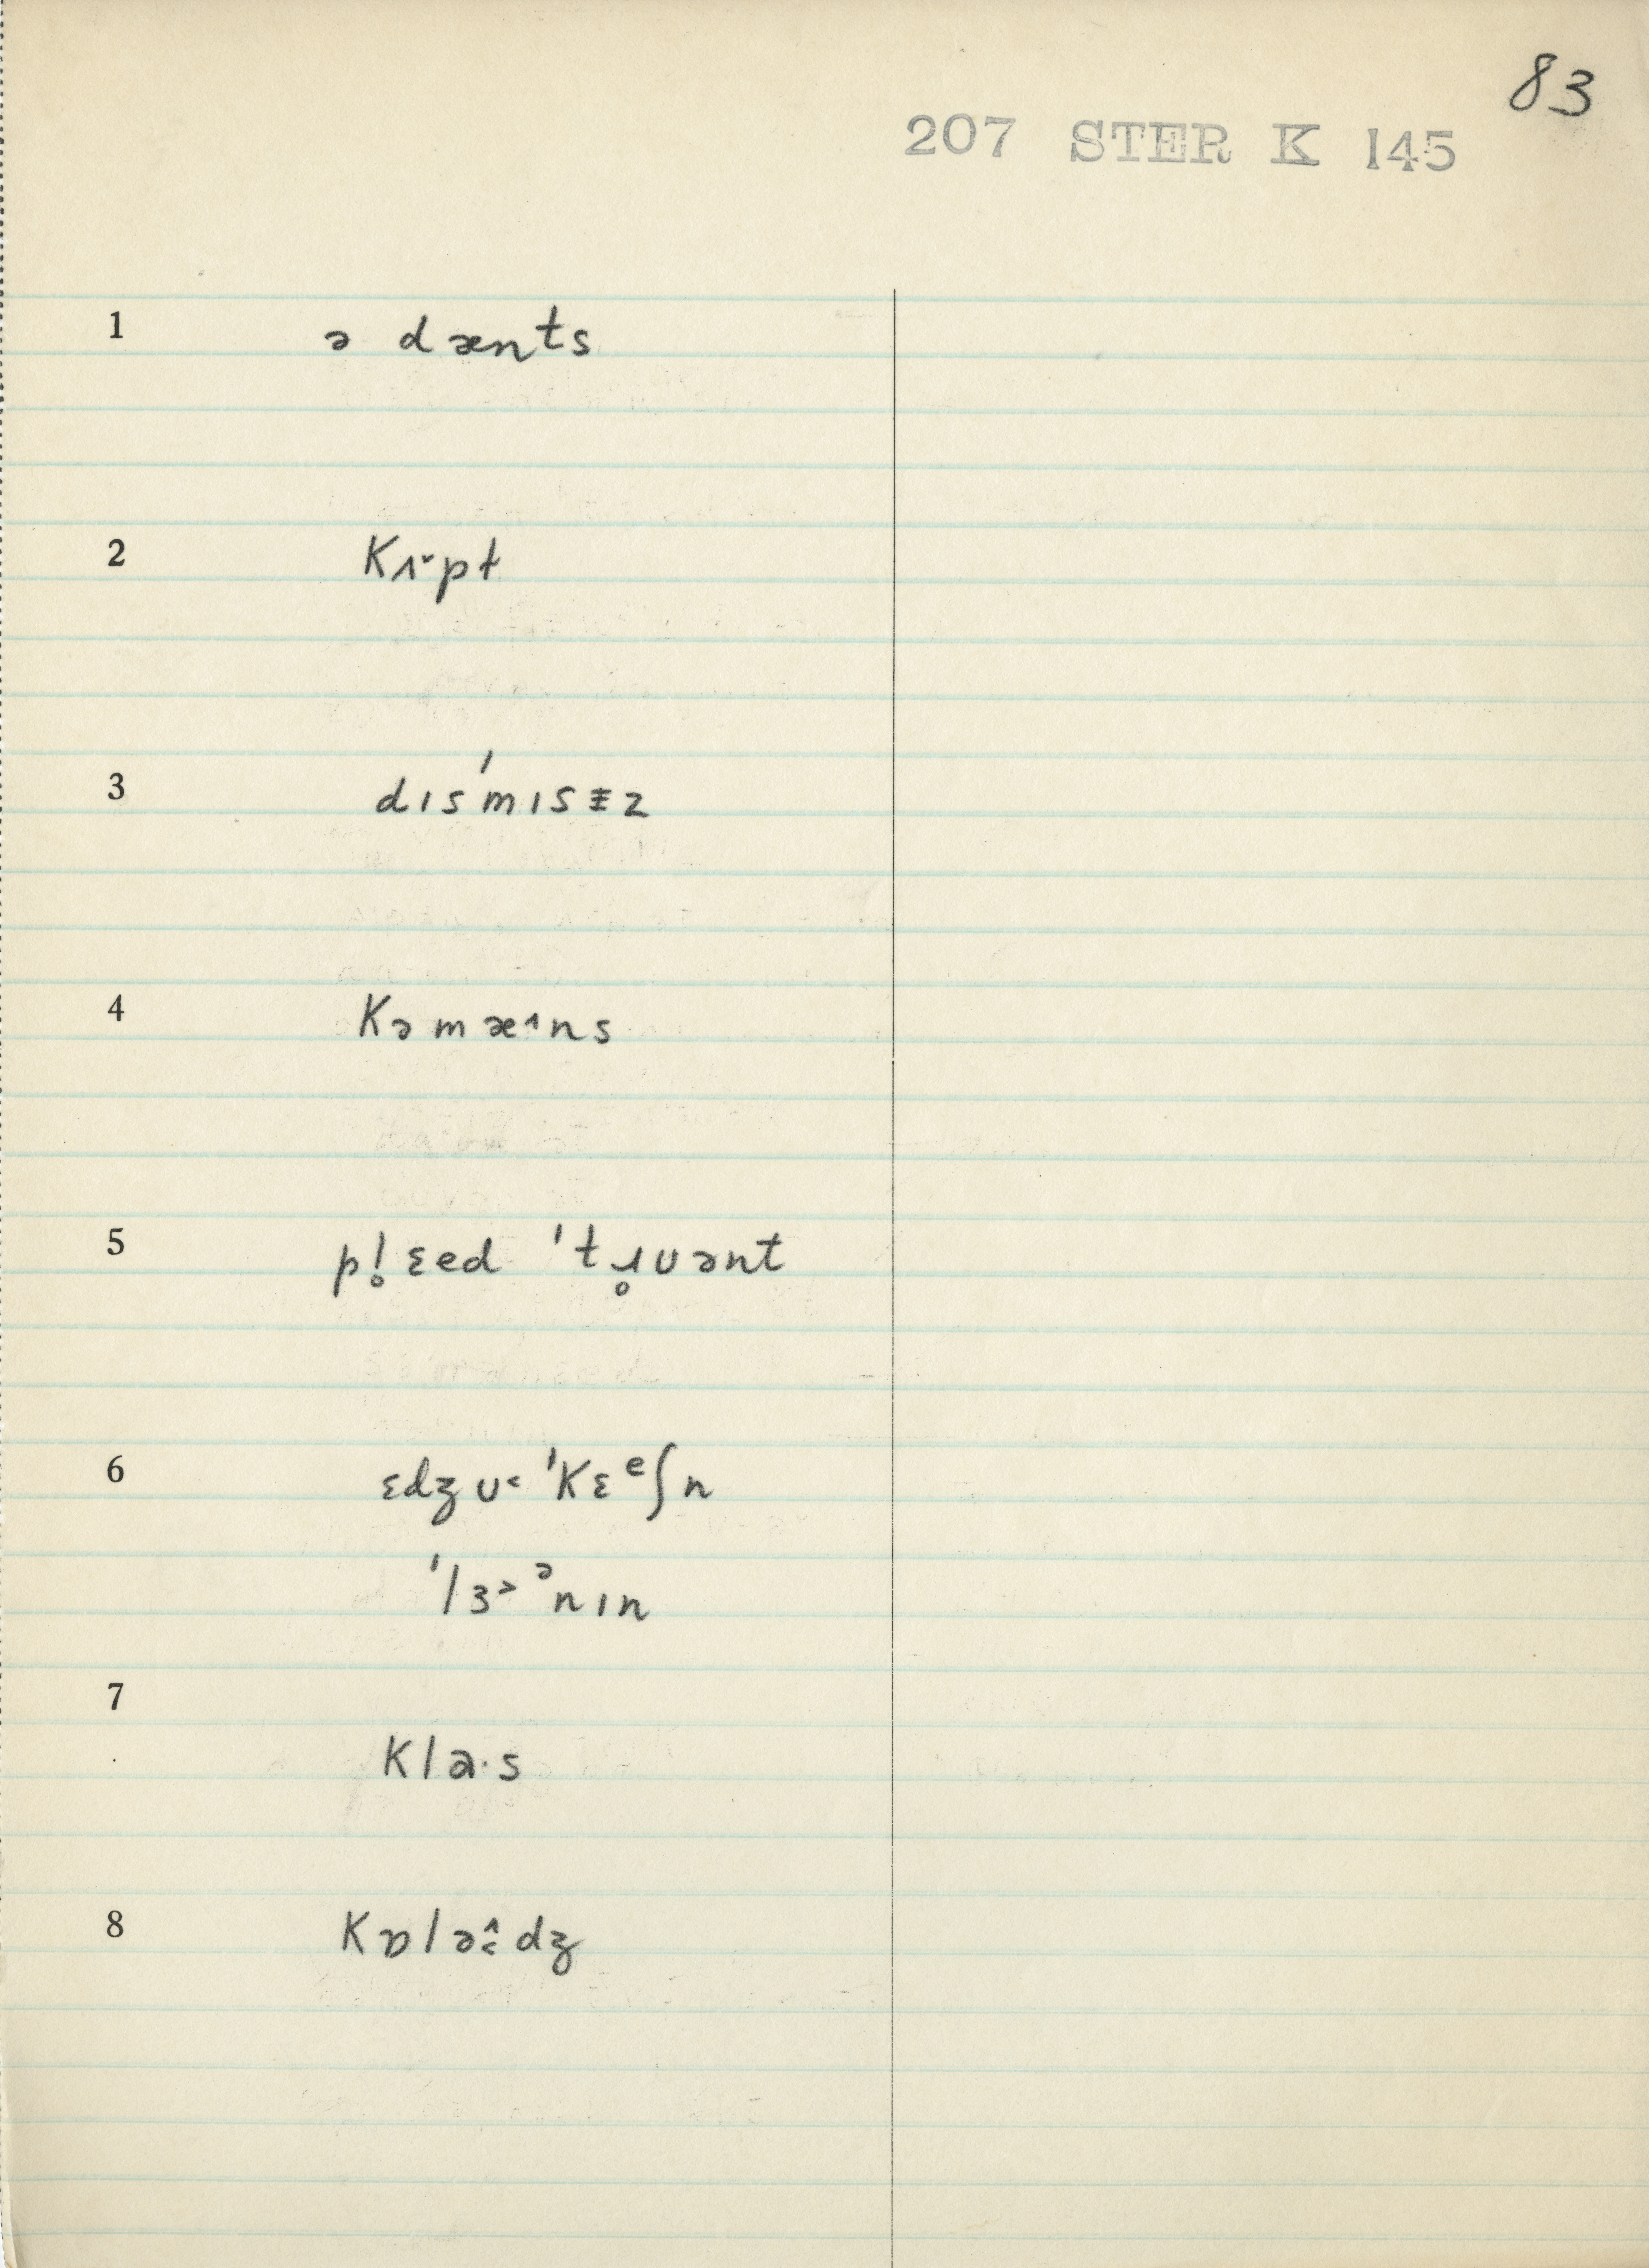 83
207 STER K 145
1 ə dænts
2 Kɪ˅pt
3 dɪsˈmɪsɨz
4 Kəmæ˄ns
5 pl̥ɛed ˈtɹ̥uənt
6 ɛdʒu˂ ˈKɛᵉʃn
ˈlɜ˃ᵊnɪn
7 Kla·s
8 Kɒlə˄˂dʒ